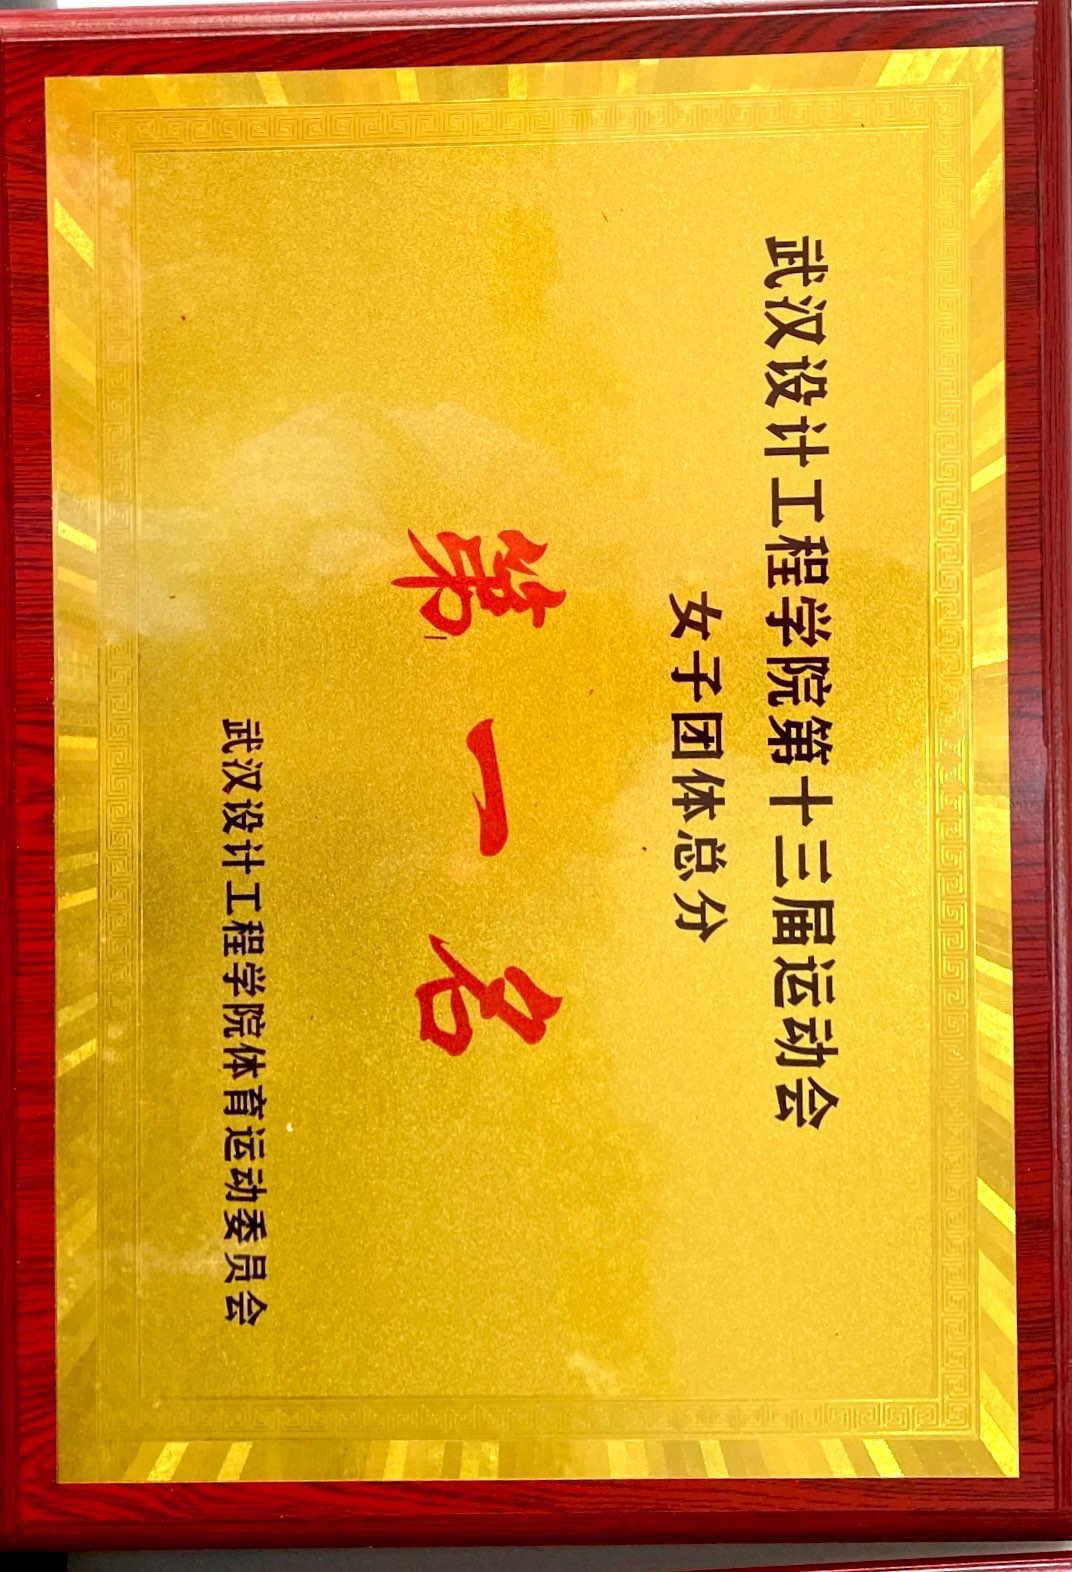 武汉设计工程学院第十三届运动会
女子团体总分
第一名
武汉设计工程学院体育运动委员会